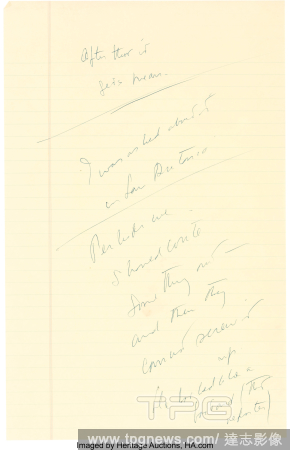 After that it
gets mean.
I was asked about it
in San Antonio
Perhaps we
should write
something out —
and then they
cannot screw it
up
looked like a
(the
reporter)
TPG
www.tpgnews.com / 達志影像
Imaged by Heritage Auctions, HA.com